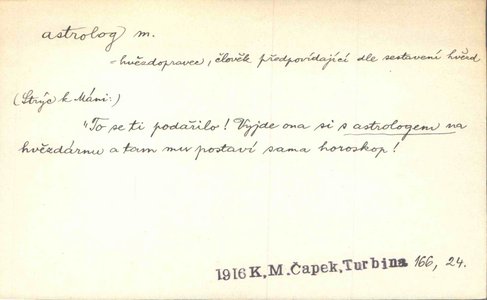 astrolog m.
- hvězdopravec, člověk předpovídající dle sestavení hvězd
(Strýc k Máni:)
"To se ti podařilo! Vyjde ona si s astrologem na
hvězdárnu a tam mu postaví sama horoskop!
1916 K.M.Čapek,Turbina 166, 24.